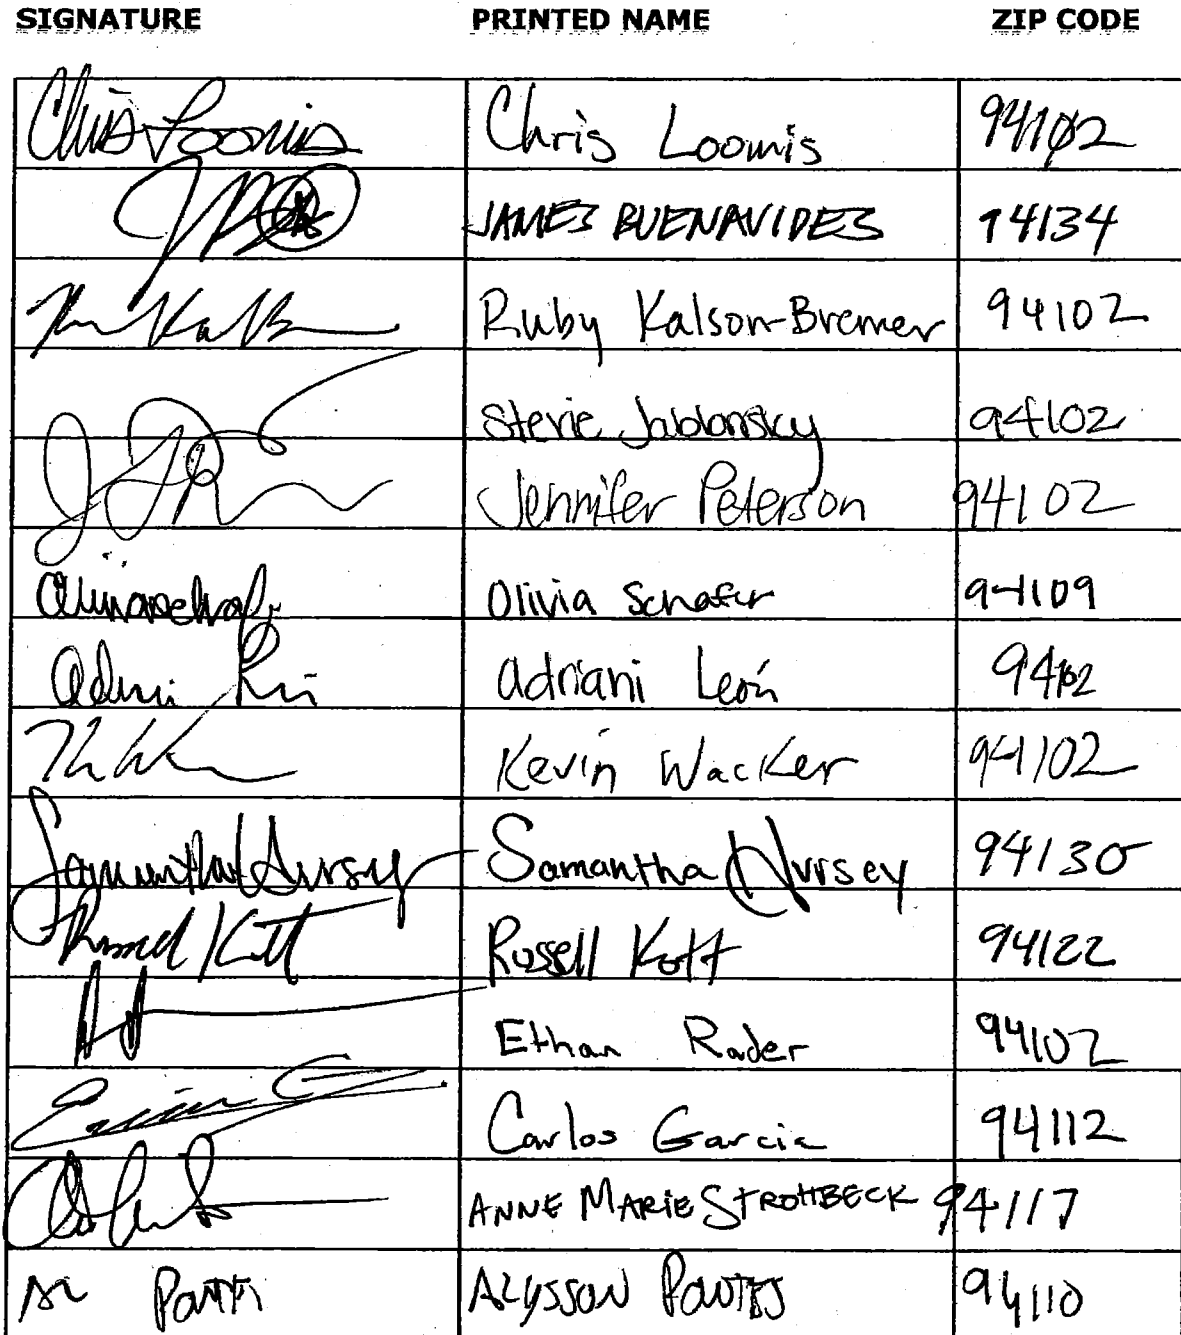 SIGNATURE PRINTED NAME ZIP CODE
Chris Loomis Chris Loomis 94102
JAMES BUENAVIDES 94134
Ruby Kalson-Bremer 94102
Stevie Jablonsky 94102
Jennifer Peterson 94102
Olivia Schafer 94109
Adriani León 94102
Kevin Wacker 94102
Samantha Hursey Samantha Hursey 94130
Russell Kott Russell Kott 94122
Ethan Rader 94102
Carlos Garcia 94112
ANNE MARIE STROHBECK 94117
ALYSSON 94110